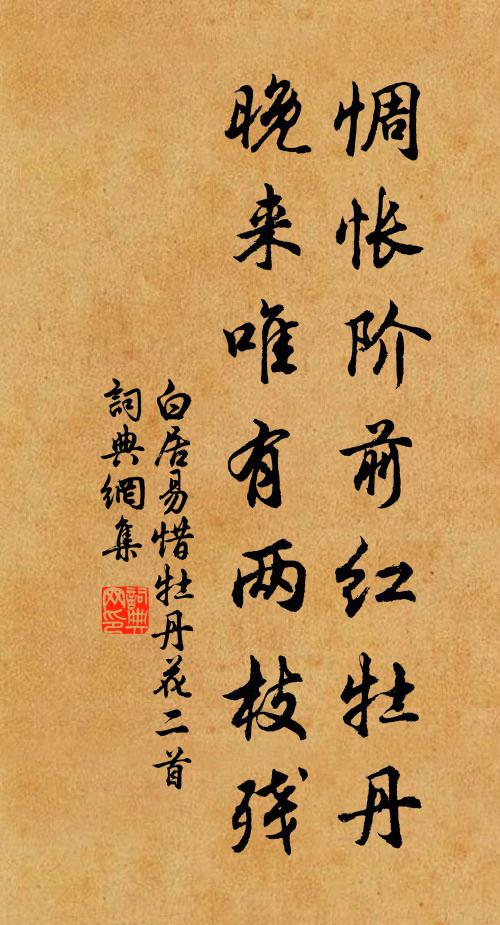 惆怅阶前红牡丹
晚来唯有两枝残
白居易惜牡丹花二首
詞典網集
詞典
网印